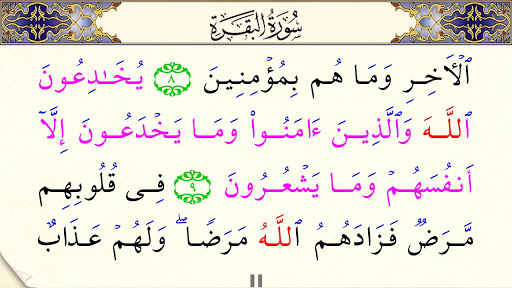 سُورَةُ البَقَرَةِ
ٱلْأَخِرِ وَمَا هُم بِمُؤْمِنِينَ ٨ يُخَٰدِعُونَ
ٱللَّهَ وَٱلَّذِينَ ءَامَنُوا۟ وَمَا يَخْدَعُونَ إِلَّآ
أَنفُسَهُمْ وَمَا يَشْعُرُونَ ٩ فِى قُلُوبِهِم
مَّرَضٌ فَزَادَهُمُ ٱللَّهُ مَرَضًا ۖ وَلَهُمْ عَذَابٌ